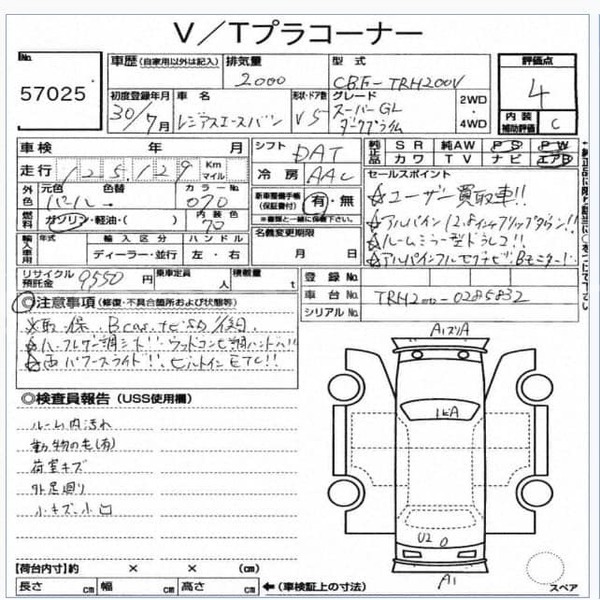 V／Tプラコーナー
No.
57025
車歴(自家用以外は記入)
排気量
2000
型式
CBF-TRH200V
評価点
4
初度登録年月
30/7月
車名
レジアスエースバン
形状・ドア数
V5
グレード
スーパーGL
ダークプライム
2WD
・
4WD
内装
補助評価
C
車検 年 月
シフト
DAT
純正品
SR 純AW PS PW
カワ TV ナビ エアB
走行
125,129
Km
マイル
冷房
AAC
セールスポイント
☆ユーザー買取車!!
☆アルパイン12.8インチフリップダウン!!
☆ルームミラー型ドラレコ!!
☆アルパインフルセグナビBモニター!
外色
元色 色替
パール
カラーNo.
070
新車整備手帳
(保証書付)
有・無
※書類と一緒に保管下さい。
燃料
ガソリン・軽油・( )
内装色
70
名義変更期限
月 日
輸入車用
年式
輸入区分
ディーラー・並行
ハンドル
左・右
リサイクル
預託金
9550円
乗車定員
人
積載量
t
登録No.
車台No.
TRH200-0285832
シリアルNo.
◎注意事項(修復・不具合箇所および状態等)
☆取、保、Bcas
ETC!!
◎検査員報告(USS使用欄)
ルーム内汚れ
動物のも(有)
荷室キズ
外足廻り
小キズ・小凹
A1ズリA
1ヒA
U2
A1
【荷台内寸】約 × × (cm)
長さ cm 幅 cm 高さ cm ←(車検証上の寸法)
スペア